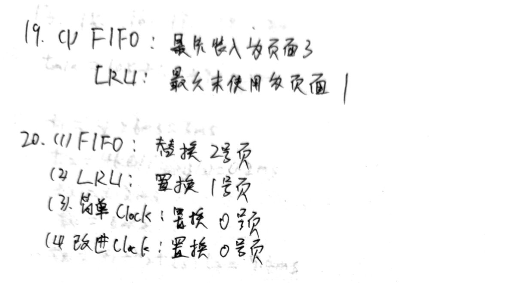 19. (1) FIFO: 最先装入的页面3
LRU: 最久未使用的页面1
20. (1) FIFO: 替换 2号页
(2) LRU: 置换 1号页
(3). 简单 Clock: 置换 0号页
(4 改进Clock: 置换 0号页